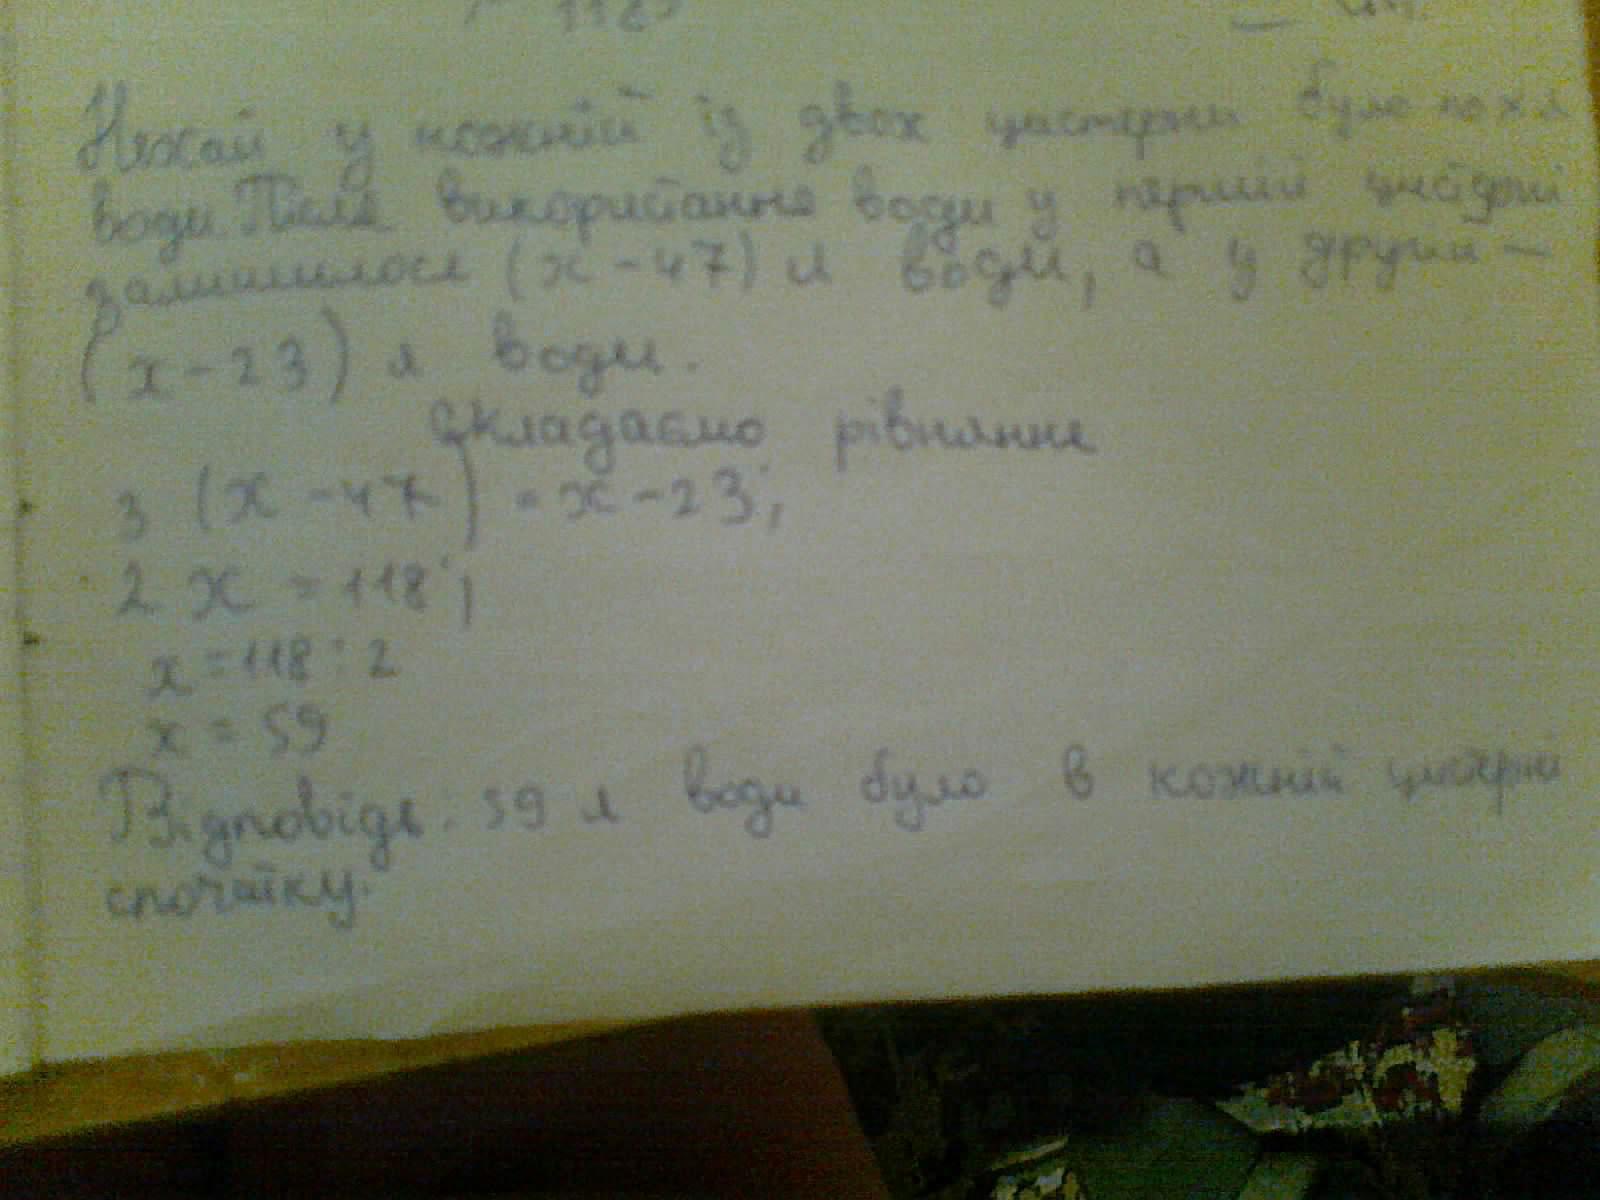 Нехай у кожній із двох цистерни було по х л
води. Після використання води у першій цистерні
залишилося (x - 47) л води, а у другій -
(x - 23) л води.
Складаємо рівняння
3 (x - 47) = x - 23;
2 x = 118;
x = 118 : 2
x = 59
Відповідь: 59 л води було в кожній цистерні
спочатку.